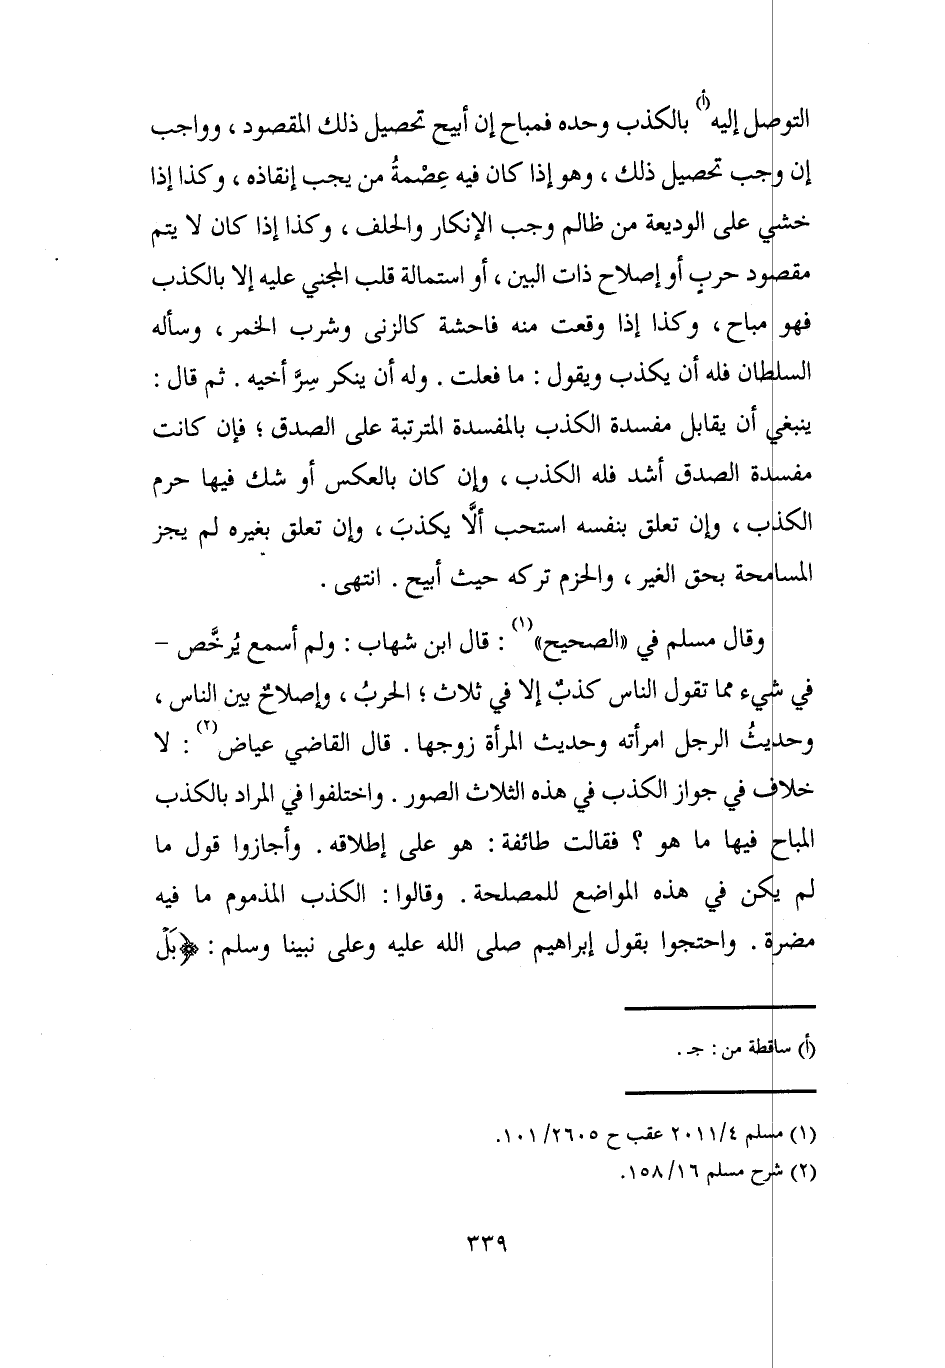 التوصل إليه(أ) بالكذب وحده فمباح إن أبيح تحصيل ذلك المقصود ، وواجب
إن وجب تحصيل ذلك ، وهو إذا كان فيه عِصْمةُ من يجب إنقاذه ، وكذا إذا
خشي على الوديعة من ظالم وجب الإنكار والحلف ، وكذا إذا كان لا يتم
مقصود حربٍ أو إصلاح ذات البين ، أو استمالة قلب المجني عليه إلا بالكذب
فهو مباح ، وكذا إذا وقعت منه فاحشة كالزنى وشرب الخمر ، وسأله
السلطان فله أن يكذب ويقول : ما فعلت . وله أن ينكر سِرَّ أخيه . ثم قال :
ينبغي أن يقابل مفسدة الكذب بالمفسدة المترتبة على الصدق ؛ فإن كانت
مفسدة الصدق أشد فله الكذب ، وإن كان بالعكس أو شك فيها حرم
الكذب ، وإن تعلق بنفسه استحب ألَّا يكذبَ ، وإن تعلق بغيره لم يجز
المسامحة بحق الغير ، والحزم تركه حيث أبيح . انتهى .
وقال مسلم في «الصحيح»(١) : قال ابن شهاب : ولم أسمع يُرخَّص –
في شيء مما تقول الناس كذبٌ إلا في ثلاث ؛ الحربُ ، وإصلاحٌ بين الناس ،
وحديثُ الرجل امرأته وحديث المرأة زوجها . قال القاضي عياض(٢) : لا
خلاف في جواز الكذب في هذه الثلاث الصور . واختلفوا في المراد بالكذب
المباح فيها ما هو ؟ فقالت طائفة : هو على إطلاقه . وأجازوا قول ما
لم يكن في هذه المواضع للمصلحة . وقالوا : الكذب المذموم ما فيه
مضرة . واحتجوا بقول إبراهيم صلى الله عليه وعلى نبينا وسلم : ﴿بَلْ
(أ) ساقطة من : جـ .
(١) مسلم ٢٠١١/٤ عقب ح ١٠١/٢٦٠٥.
(٢) شرح مسلم ١٥٨/١٦.
٣٣٩